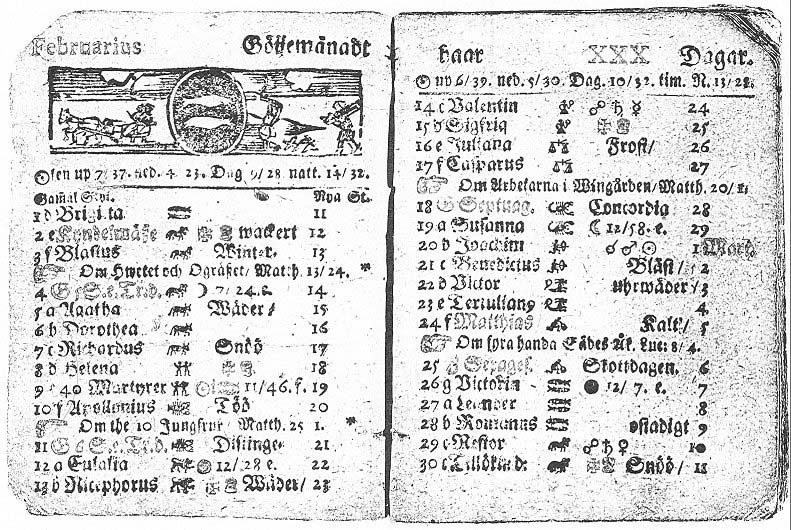 Februarius Göijemånadt
Solen up 7/37. ned. 4 23. Dag 9/28 natt. 14/32.
Gamal Styl. Nya St.
1 d Brigitta 11
2 e Kyndelmässe wackert 12
3 f Blasius Winter. 13
Om Hwetet och Ogräset/ Matth. 13/24. *
4 G 5 S. e. Tr. d. ☽ 7/24. e. 14
5 a Agatha Wäder/ 15
6 b Dorothea 16
7 c Richardus Snöö 17
8 d Helena 18
9 e 40 Martyrer 11/46. f. 19
10 f Apollonius Töö 20
Om the 10 Jungfrur/ Matth. 25 1. *
11 G 6 S. e. Tr. d. Distinge. 21
12 a Eulalia 12/28 e. 22
13 b Nicephorus Wäder/ 23
haar XXX Dagar.
☉ up 6/39. ned. 5/30. Dag. 10/32. tim. N. 13/28.
14 c Valentin ☍ ♄ ☿ 24
15 d Sigfrid 25
16 e Juliana Frost/ 26
17 f Casparus 27
Om Arbetarna i Wingården/ Matth. 20/1.
18 G Septuag. Concordia 28
19 a Susanna ☾ 12/58. e. 29
20 b Joachim ☌ ♂ ☉ 1 Mart.
21 c Benedictus Bläst/ 2
22 d Victor uhrwäder/ 3
23 e Tertulian9 4
24 f Matthias Kalt/ 5
Om fyra handa Sädes Åk. Luc: 8/4.
25 g Sexages. Skottdagen. 6
26 g Victorin ● 12/7. e. 7
27 a Leander 8
28 b Romanus ostadigt 9
29 c Nestor ☍ ♄ ♀ 10
30 c Tillökn d: Snöö/ 11